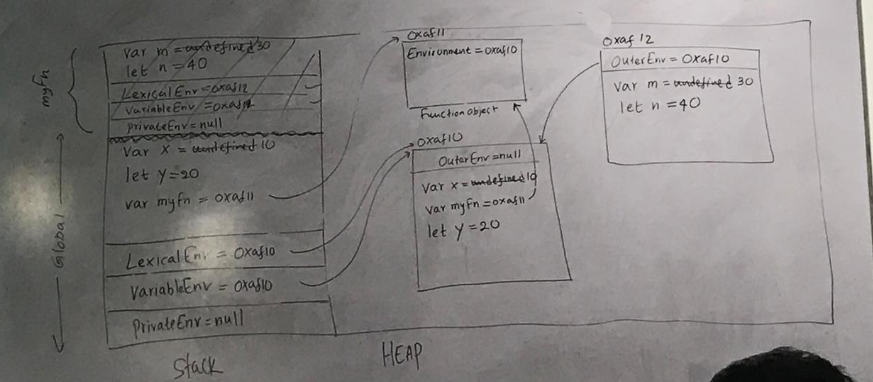 myFn
var m = undefined 30
let n = 40
LexicalEnv = 0xaf12
VariableEnv = 0xaf12
PrivateEnv = null
Global
var x = undefined 10
let y = 20
var myFn = 0xaf11
LexicalEnv = 0xaf10
VariableEnv = 0xaf10
PrivateEnv = null
Stack
0xaf11
Environment = 0xaf10
Function object
0xaf10
OuterEnv = null
var x = undefined 10
var myFn = 0xaf11
let y = 20
0xaf12
OuterEnv = 0xaf10
var m = undefined 30
let n = 40
HEAP